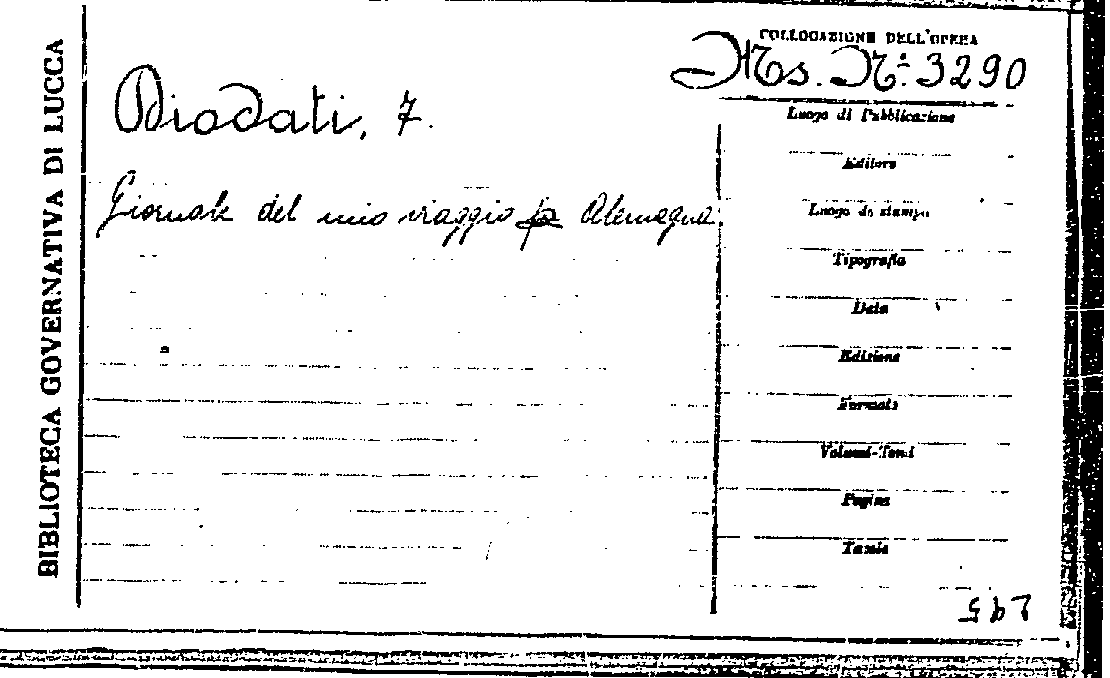 BIBLIOTECA GOVERNATIVA DI LUCCA
COLLOCAZIONE DELL'OPERA
Ms. N.º 3290
Diodati, 7.
Giornale del mio viaggio Alemagna.
Luogo di Pubblicazione
Editore
Luogo di stampa
Tipografia
Data
Edizione
Formato
Volumi-Tomi
Pagine
Tavole